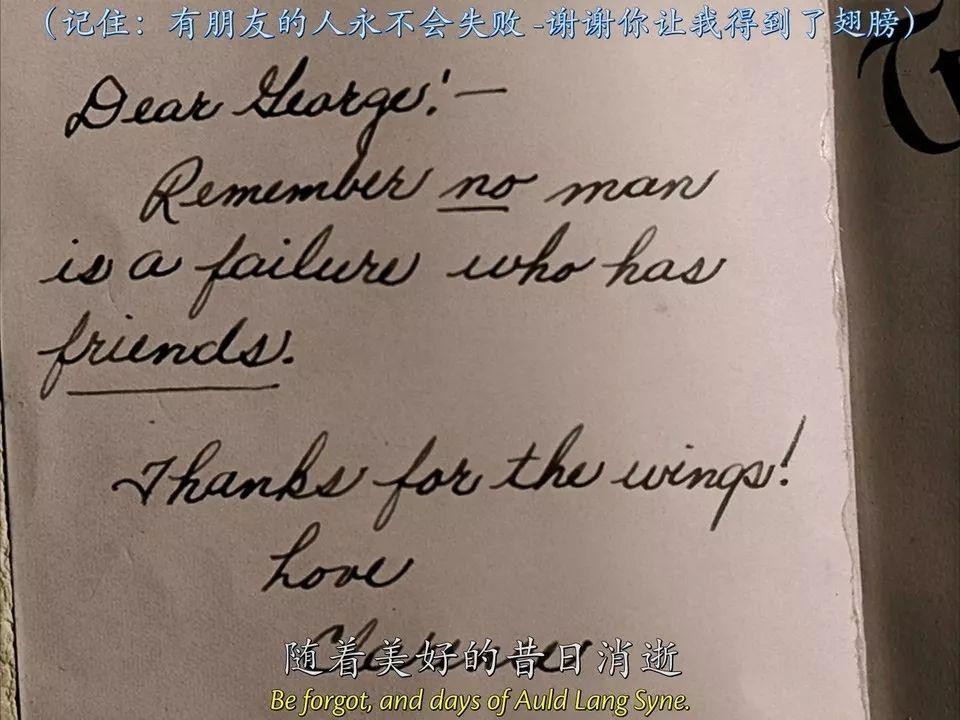 （记住：有朋友的人永不会失败 -谢谢你让我得到了翅膀）
Dear George:—
Remember no man
is a failure who has
friends.
Thanks for the wings!
Love
随着美好的昔日消逝
Be forgot, and days of Auld Lang Syne.